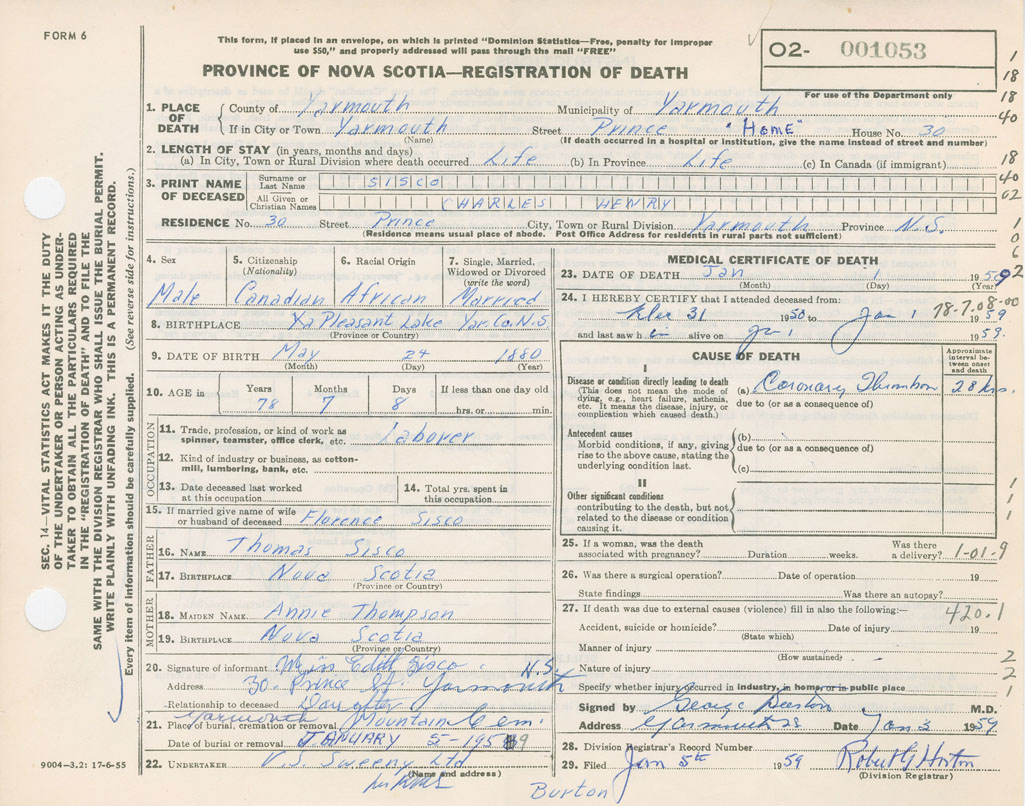 FORM 6
This form, if placed in an envelope, on which is printed "Dominion Statistics—Free, penalty for improper
use $50," and properly addressed will pass through the mail "FREE"
PROVINCE OF NOVA SCOTIA—REGISTRATION OF DEATH
O2- 001053
For use of the Department only
1
18
18
40
18
40
02
1
0
6
92
SEC. 14—VITAL STATISTICS ACT MAKES IT THE DUTY
OF THE UNDERTAKER OR PERSON ACTING AS UNDER-
TAKER TO OBTAIN ALL THE PARTICULARS REQUIRED
IN THE "REGISTRATION OF DEATH" AND TO FILE THE
SAME WITH THE DIVISION REGISTRAR WHO SHALL ISSUE THE BURIAL PERMIT.
WRITE PLAINLY WITH UNFADING INK. THIS IS A PERMANENT RECORD.
Every item of information should be carefully supplied. (See reverse side for instructions.)
1. PLACE OF DEATH
County of Yarmouth Municipality of Yarmouth
If in City or Town Yarmouth Street Prince "HOME" House No. 30
(Name) (If death occurred in a hospital or institution, give the name instead of street and number)
2. LENGTH OF STAY (in years, months and days)
(a) In City, Town or Rural Division where death occurred Life (b) In Province Life (c) In Canada (if immigrant)
3. PRINT NAME OF DECEASED
Surname or Last Name SISCO
All Given or Christian Names CHARLES HENRY
RESIDENCE No. 30 Street Prince City, Town or Rural Division Yarmouth Province N.S.
(Residence means usual place of abode. Post Office Address for residents in rural parts not sufficient)
4. Sex
Male
5. Citizenship
(Nationality)
Canadian
6. Racial Origin
African
7. Single, Married, Widowed or Divorced
(write the word)
Married
8. BIRTHPLACE Pleasant Lake Yar. Co. N.S
(Province or Country)
9. DATE OF BIRTH May 24 1880
(Month) (Day) (Year)
10. AGE in
Years Months Days If less than one day old
78 7 8 hrs. or min.
OCCUPATION
11. Trade, profession, or kind of work as
spinner, teamster, office clerk, etc. Laborer
12. Kind of industry or business, as cotton-
mill, lumbering, bank, etc.
13. Date deceased last worked
at this occupation
14. Total yrs. spent in
this occupation
15. If married give name of wife
or husband of deceased Florence Sisco
FATHER
16. NAME Thomas Sisco
17. BIRTHPLACE Nova Scotia
(Province or Country)
MOTHER
18. MAIDEN NAME Annie Thompson
19. BIRTHPLACE Nova Scotia
(Province or Country)
20. Signature of informant Edith Sisco N.S.
Address 30 Prince St. Yarmouth
Relationship to deceased Daughter
21. Place of burial, cremation or removal Yarmouth Mountain Cem.
Date of burial or removal JANUARY 5-1959
22. UNDERTAKER V.S. Sweeny Ltd
(Name and address)
Burton
9004—3.2: 17-6-55
MEDICAL CERTIFICATE OF DEATH
23. DATE OF DEATH Jan 1 1959
(Month) (Day) (Year)
24. I HEREBY CERTIFY that I attended deceased from:
Dec 31 1950 to Jan 1 1959
78-7.08-00
and last saw h im alive on Ja 1 1959.
CAUSE OF DEATH
Approximate interval between onset and death
I
Disease or condition directly leading to death
(This does not mean the mode of
dying, e.g., heart failure, asthenia,
etc. It means the disease, injury, or
complication which caused death.)
(a) Coronary Thrombosis 28 hrs.
due to (or as a consequence of)
Antecedent causes
Morbid conditions, if any, giving
rise to the above cause, stating the
underlying condition last.
(b)
due to (or as a consequence of)
(c)
II
Other significant conditions
contributing to the death, but not
related to the disease or condition
causing it.
1
1
1
25. If a woman, was the death
associated with pregnancy? Duration weeks. Was there a delivery?
1-01-9
26. Was there a surgical operation? Date of operation 19
State findings Was there an autopsy?
27. If death was due to external causes (violence) fill in also the following:—
420.1
Accident, suicide or homicide? Date of injury 19
(State which)
Manner of injury
(How sustained)
2
Nature of injury
2
Specify whether injury occurred in industry, in home, or in public place
1
Signed by George M.D.
Address Yarmouth NS Date Jan 3 1959
28. Division Registrar's Record Number
29. Filed Jan 5th 1959 Robert G Horton
(Division Registrar)